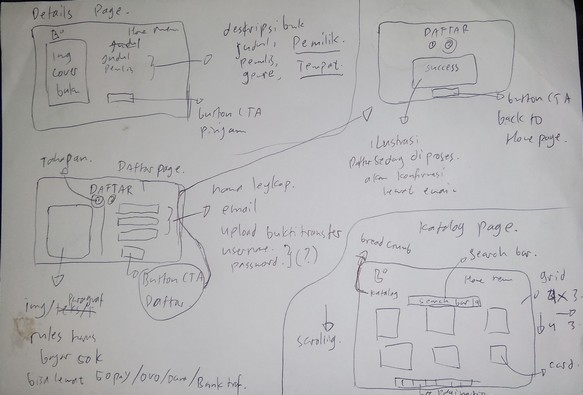 Details Page.
Home menu
img
cover
buku
judul
penulis
deskripsi buku
judul, Pemilik.
penulis,
genre, Tempat.
button CTA
pinjam
DAFTAR
success
button CTA
back to
Home page.
ilustrasi
Daftar sedang di proses.
akan konfirmasi
lewat email
Tahapan.
Daftar page.
DAFTAR
1 2
nama lengkap.
email
upload bukti transfer
username.
password. (?)
Button CTA
Daftar
img/
Paragraf
rules harus
bayar 50k
bisa lewat Gopay/OVO/Dana/Bank trf.
Katalog page.
breadcrumb
search bar.
Home menu
katalog
search bar
grid
4 x 3
scrolling.
card.